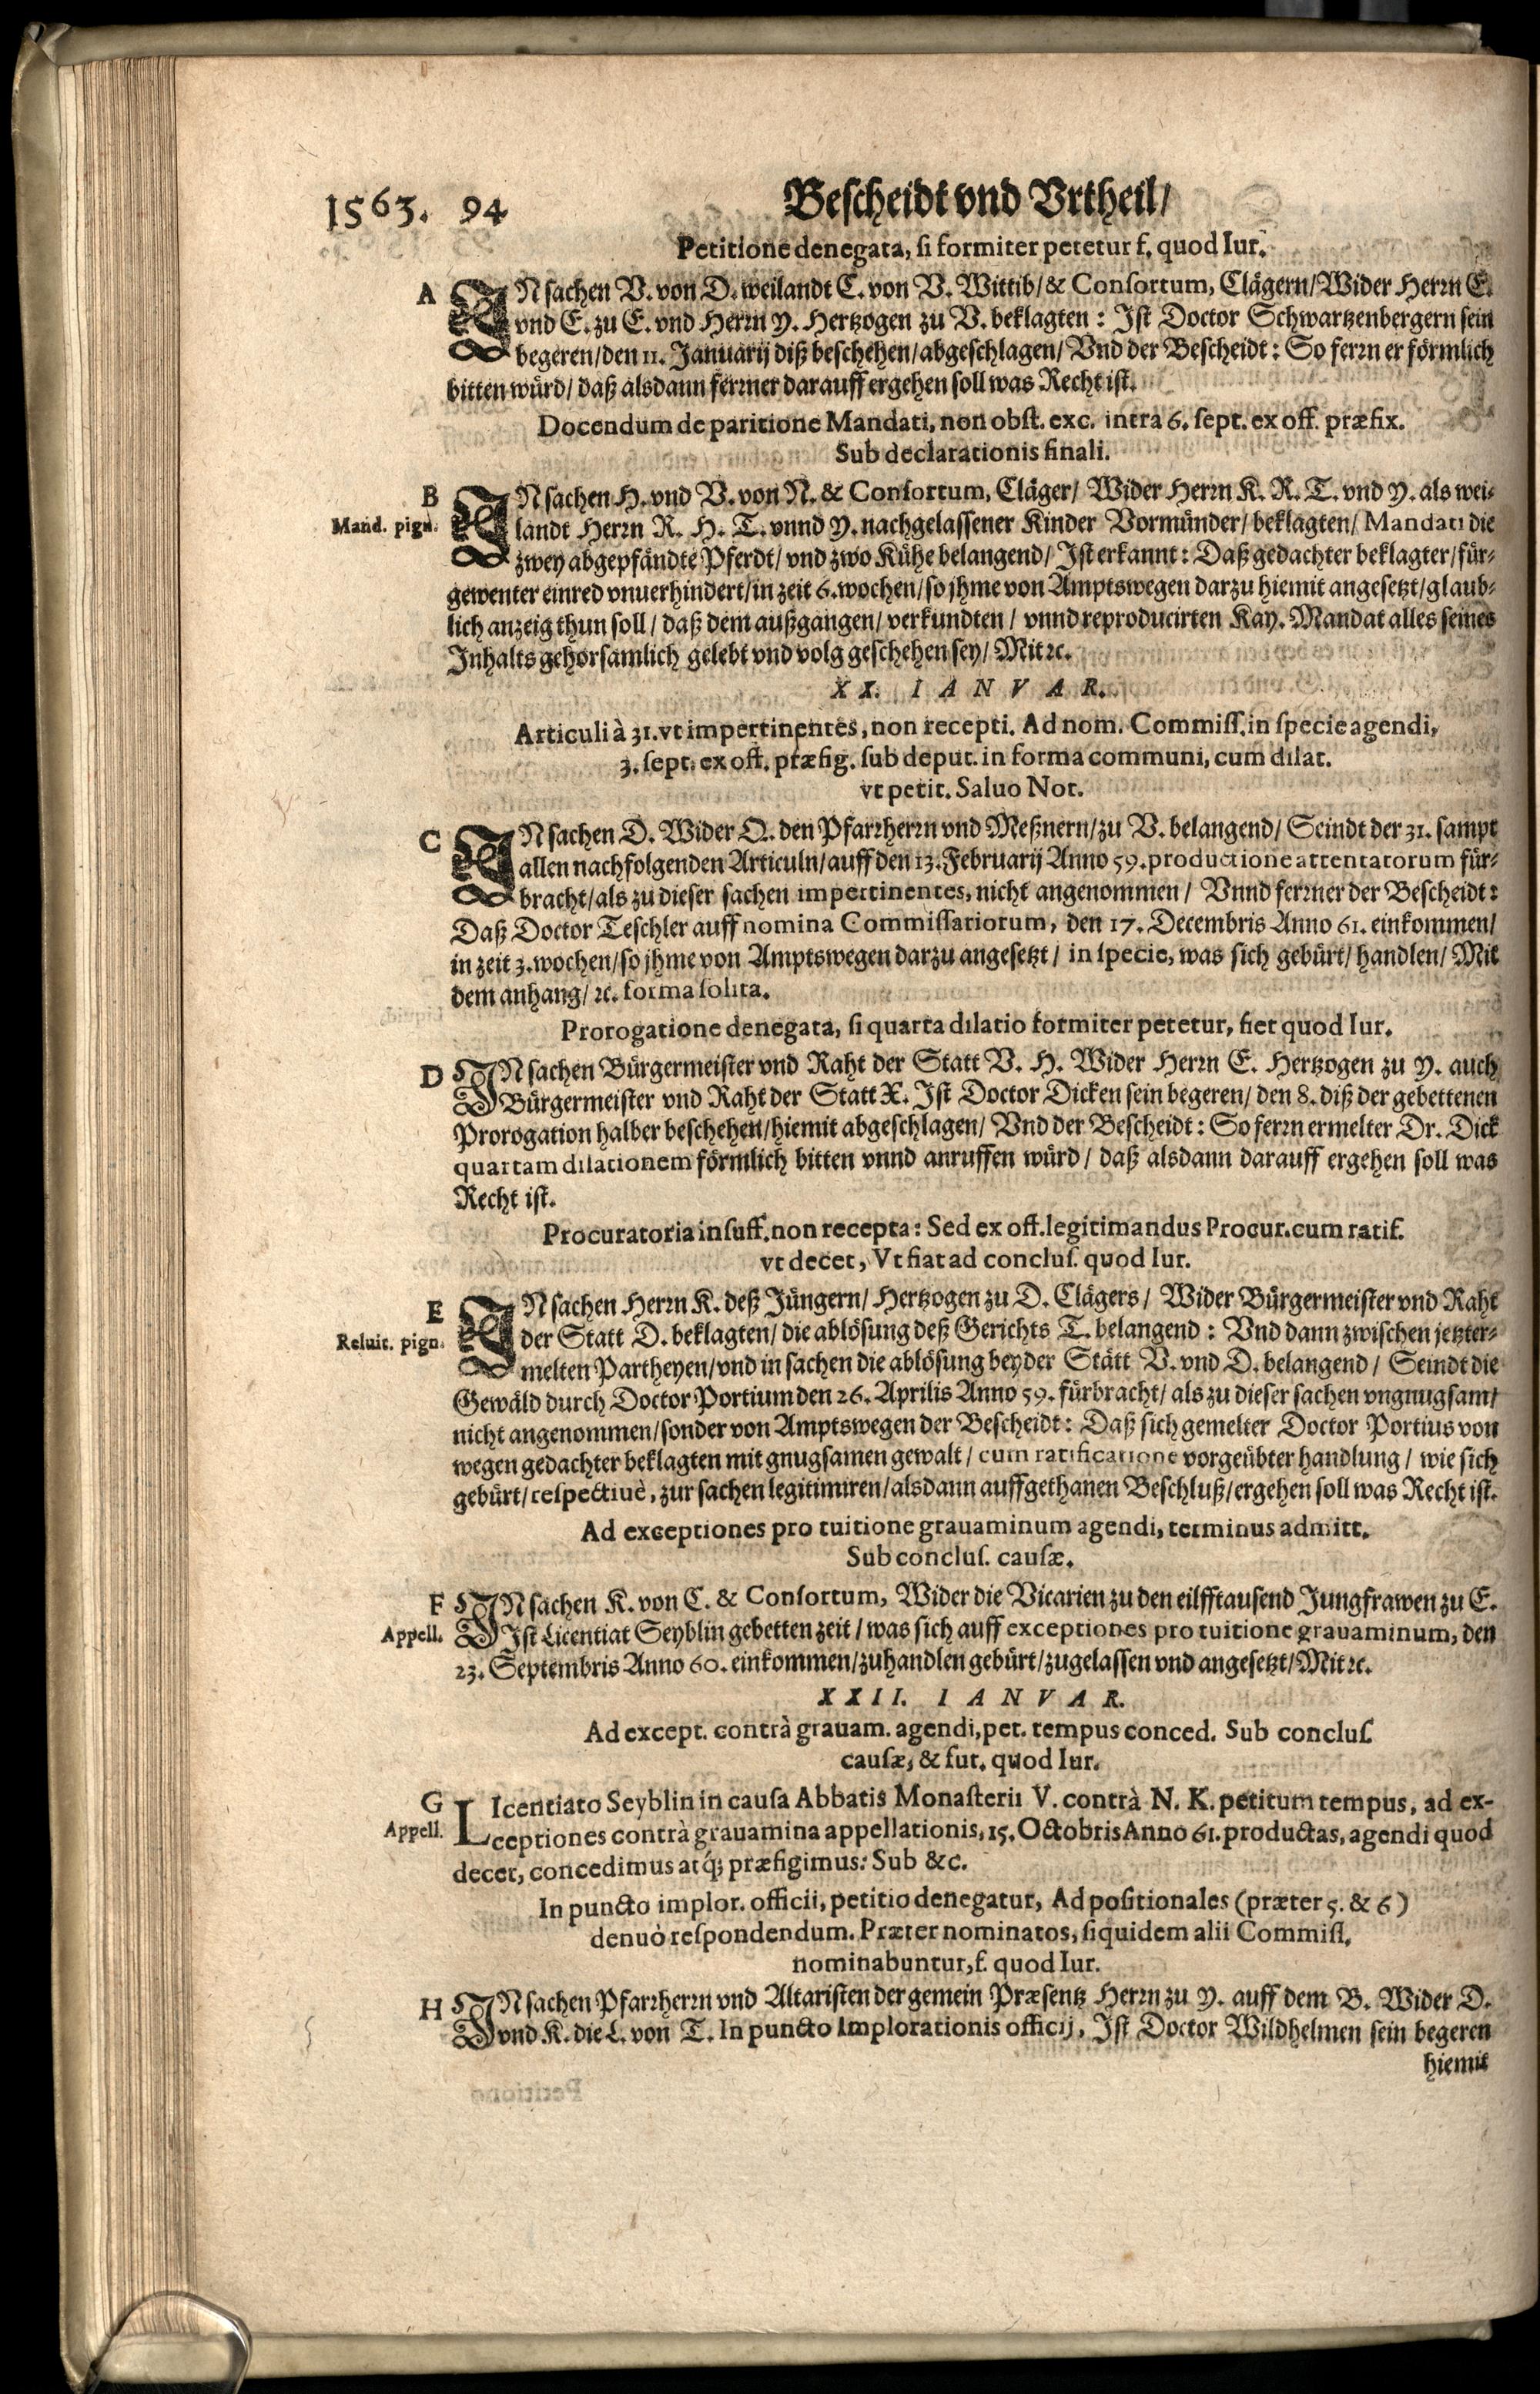 1563. 94 Bescheidt vnd Vrtheil/
Petitione denegata, si formiter petetur f. quod Iur.
A JN sachen V. von D. weilandt C. von V. Wittib/ & Consortum, Clägern/ Wider Herrn E.
vnd E. zu E. vnd Herrn Y. Hertzogen zu V. beklagten: Ist Doctor Schwartzenbergern sein
begeren/ den 11. Januarij diß beschehen/ abgeschlagen/ Vnd der Bescheidt: So ferrn er förmlich
bitten würd/ daß alsdann ferrner darauff ergehen soll was Recht ist.
Docendum de paritione Mandati, non obst. exc. intra 6. sept. ex off. præfix.
Sub declarationis finali.
B JN sachen H. vnd V. von N. & Consortum, Cläger/ Wider Herrn K. R. T. vnd Y. als wei-
Mand. pign. landt Herrn R. H. T. vnnd Y. nachgelassener Kinder Vormünder/ beklagten/ Mandati die
zwey abgepfändte Pferdt/ vnd zwo Kühe belangend/ Ist erkannt: Daß gedachter beklagter/ für-
gewenter einred vnuerhindert/ in zeit 6. wochen/ so jhme von Amptswegen darzu hiemit angesetzt/ glaub-
lich anzeig thun soll/ daß dem außgangen/ verkundten/ vnnd reproducirten Kay. Mandat alles seines
Inhalts gehorsamlich gelebt vnd volg geschehen sey/ Mit ꝛc.
XX. IANVAR.
Articuli à 31. vt impertinentes, non recepti. Ad nom. Commiss. in specie agendi,
3. sept. ex off. præfig. sub deput. in forma communi, cum dilat.
vt petit. Saluo Not.
C JN sachen D. Wider Q. den Pfarrherrn vnd Meßnern/ zu V. belangend/ Seindt der 31. sampt
allen nachfolgenden Articuln/ auff den 13. Februarij Anno 59. productione attentatorum für-
bracht/ als zu dieser sachen impertinentes, nicht angenommen/ Vnnd ferrner der Bescheidt:
Daß Doctor Teschler auff nomina Commissariorum, den 17. Decembris Anno 61. einkommen/
in zeit 3. wochen/ so jhme von Amptswegen darzu angesetzt/ in specie, was sich gebürt/ handlen/ Mit
dem anhang/ ꝛc. forma solita.
Prorogatione denegata, si quarta dilatio formiter petetur, fiet quod Iur.
D JN sachen Bürgermeister vnd Raht der Statt V. H. Wider Herrn E. Hertzogen zu Y. auch
Bürgermeister vnd Raht der Statt X. Ist Doctor Dicken sein begeren/ den 8. diß der gebettenen
Prorogation halber beschehen/ hiemit abgeschlagen/ Vnd der Bescheidt: So ferrn ermelter Dr. Dick
quartam dilationem förmlich bitten vnnd anruffen würd/ daß alsdann darauff ergehen soll was
Recht ist.
Procuratoria insuff. non recepta: Sed ex off. legitimandus Procur. cum ratif.
vt decet, Vt fiat ad conclus. quod Iur.
E JN sachen Herrn K. deß Jüngern/ Hertzogen zu D. Clägers/ Wider Bürgermeister vnd Raht
Reluit. pign. der Statt D. beklagten/ die ablösung deß Gerichts T. belangend: Vnd dann zwischen jetzter-
melten Partheyen/ vnd in sachen die ablösung beyder Stätt V. vnd D. belangend/ Seindt die
Gewäld durch Doctor Portium den 26. Aprilis Anno 59. fürbracht/ als zu dieser sachen vngnugsam/
nicht angenommen/ sonder von Amptswegen der Bescheidt: Daß sich gemelter Doctor Portius von
wegen gedachter beklagten mit gnugsamen gewalt/ cum ratificatione vorgeübter handlung/ wie sich
gebürt/ respectiuè, zur sachen legitimiren/ alsdann auff gethanen Beschluß/ ergehen soll was Recht ist.
Ad exceptiones pro tuitione grauaminum agendi, terminus admitt.
Sub conclus. causæ.
F JN sachen K. von C. & Consortum, Wider die Vicarien zu den eilfftausend Jungfrawen zu E.
Appell. Ist Licentiat Seyblin gebetten zeit/ was sich auff exceptiones pro tuitione grauaminum, den
23. Septembris Anno 60. einkommen/ zuhandlen gebürt/ zugelassen vnd angesetzt/ Mit ꝛc.
XXII. IANVAR.
Ad except. contrà grauam. agendi, pet. tempus conced. Sub conclus.
causæ, & fut. quod Iur.
G LIcentiato Seyblin in causa Abbatis Monasterii V. contrà N. K. petitum tempus, ad ex-
Appell. ceptiones contrà grauamina appellationis, 15. Octobris Anno 61. productas, agendi quod
decet, concedimus atq́; præfigimus: Sub &c.
In puncto implor. officii, petitio denegatur, Ad positionales (præter 5. & 6)
denuò respondendum. Præter nominatos, siquidem alii Commiss.
nominabuntur, f. quod Iur.
H JN sachen Pfarrherrn vnd Altaristen der gemein Præsentz Herrn zu Y. auff dem B. Wider D.
vnd K. die L. von T. In puncto Implorationis officij, Ist Doctor Wildhelmen sein begeren
hiemit